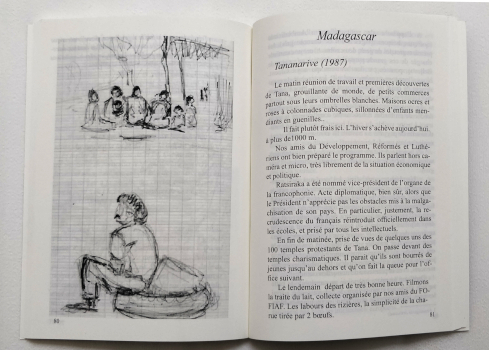 80
Madagascar
Tananarive (1987)
Le matin réunion de travail et premières découvertes
de Tana, grouillante de monde, de petits commerces
partout sous leurs umbrelles blanches. Maisons ocres et
roses à colonnades cubiques, sillonnées d'enfants men-
diants en guenilles..
Il fait plutôt frais ici. L'hiver s'achève aujourd'hui,
à plus de1000 m.
Nos amis du Développement, Réformés et Luthé-
riens ont bien préparé le programme. Ils parlent hors ca-
méra et micro, très librement de la situation économique
et politique.
Ratsiraka a été nommé vice-président de l'organe de
la francophonie. Acte diplomatique, bien sûr, alors que
le Président n'apprécie pas les obstacles mis à la malga-
chisation de son pays. En particulier, justement, la re-
crudescence du français réintroduit officiellement dans
les écoles, et prisé par tous les intellectuels.
En fin de matinée, prise de vues de quelques uns des
100 temples protestants de Tana. On passe devant des
temples charismatiques. Il parait qu'ils sont bourrés de
jeunes jusqu'au dehors et qu'on fait la queue pour l'of-
fice suivant.
Le lendemain départ de très bonne heure. Filmons
la traite du lait, collecte organisée par nos amis du FO-
FIAF. Les labours des rizières, la simplicité de la cha-
rue tirée par 2 bœufs.
81